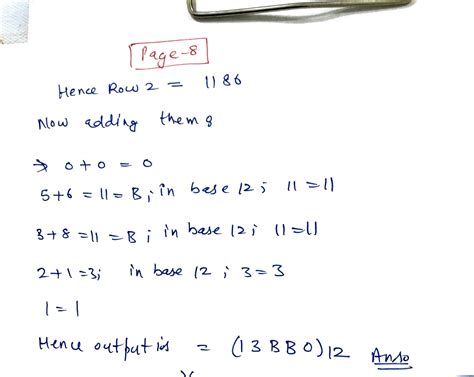 Page-8
Hence Row 2 = 1186
Now adding them :
→ 0 + 0 = 0
5+6 = 11 = B ; in base 12 ; 11 = 11
3+8 = 11 = B ; in base 12 ; 11 = 11
2+1 = 3 ; in base 12 ; 3 = 3
1 = 1
Hence output is = (13BB0)12 Ans